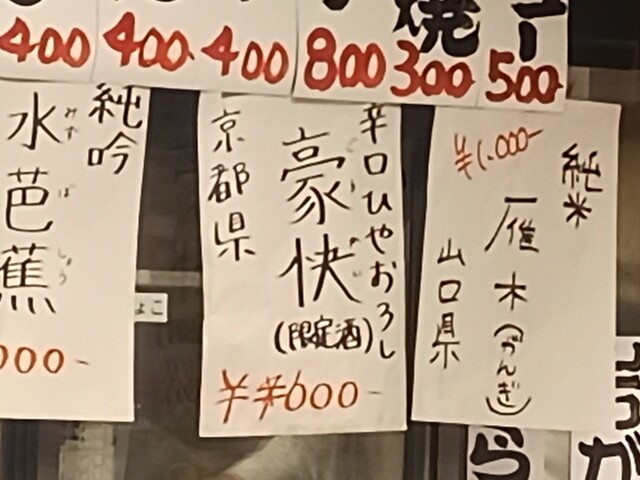 400
400
400
800
焼
300
500
純米
¥1,000-
雁木(がんぎ)
山口県
辛口ひやおろし
豪快
ごうかい
(限定酒)
京都県
¥600-
純吟
水芭蕉
みず ば しょう
000-
よこ
ら